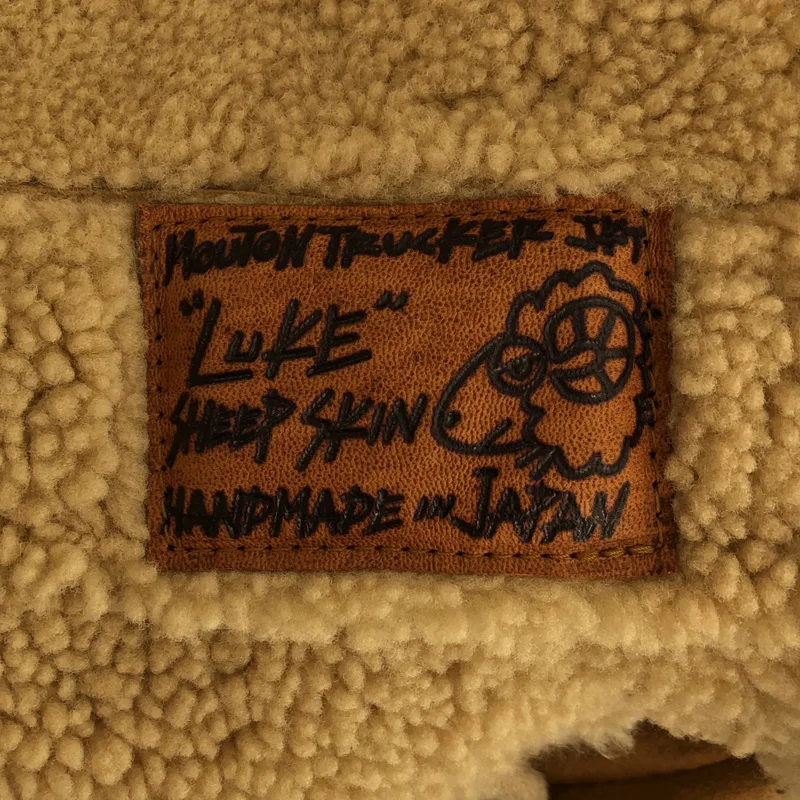 MOUTON TRUCKER JKT
"LUKE"
SHEEP SKIN
HANDMADE IN JAPAN